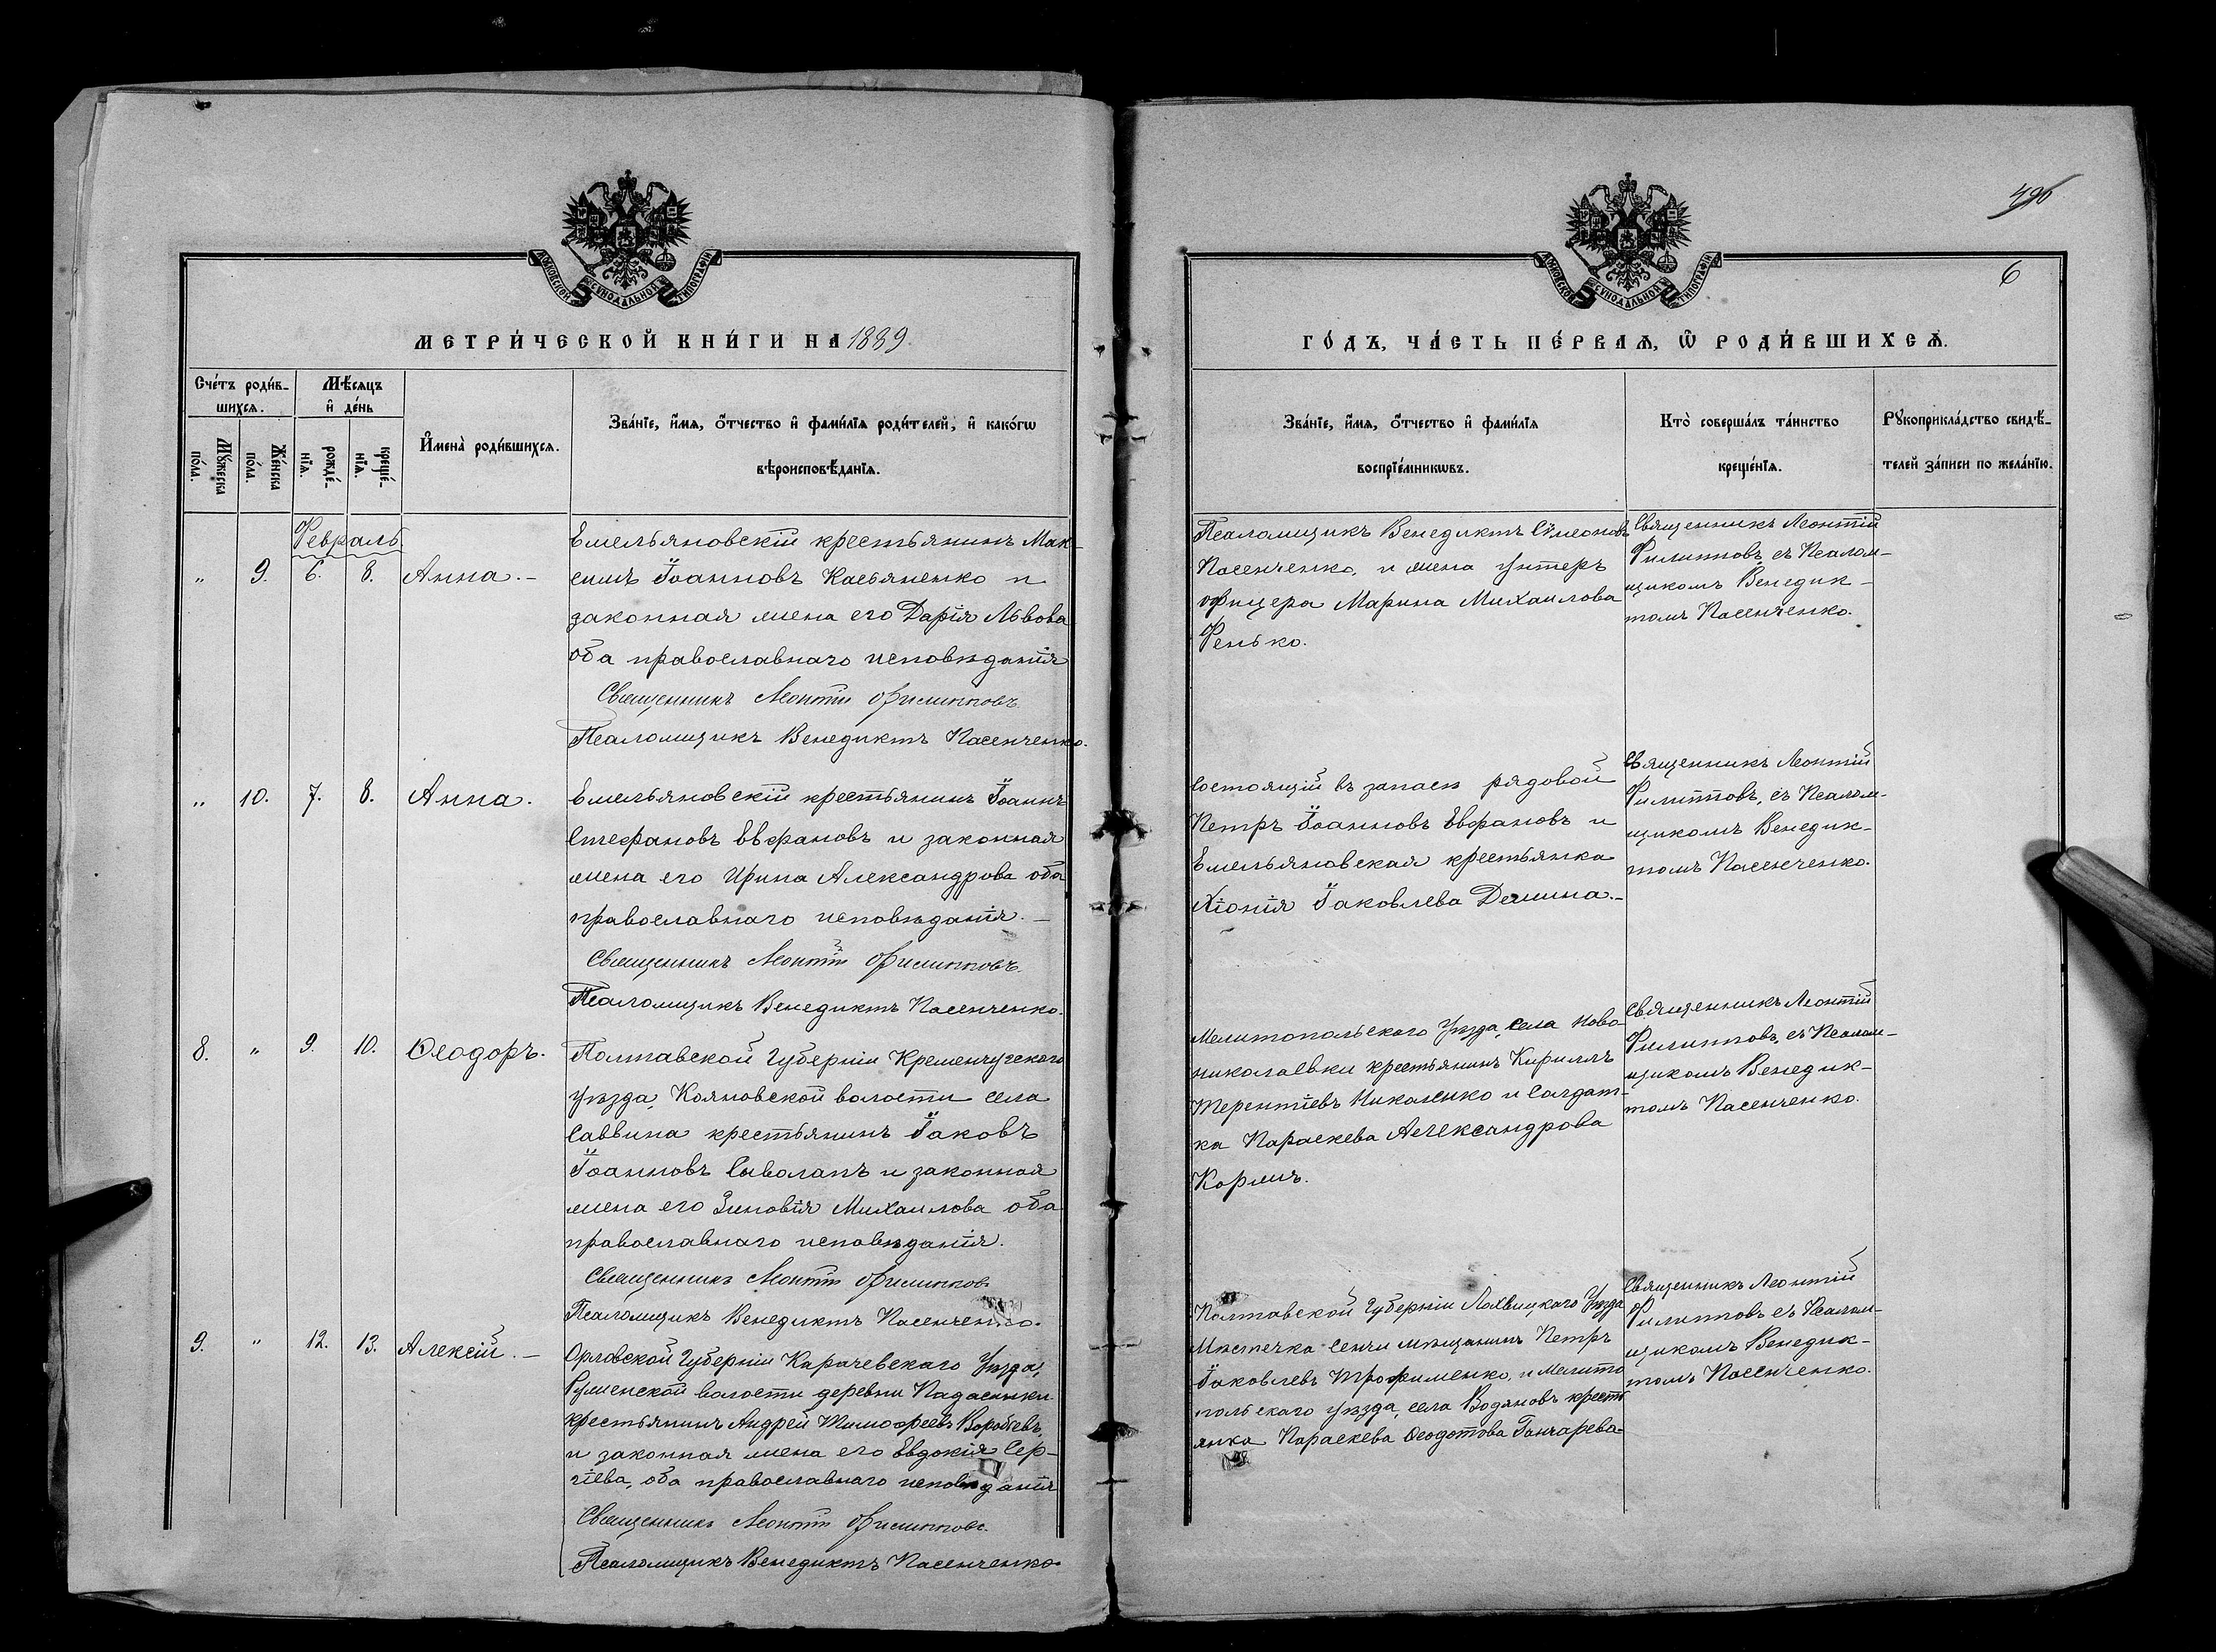 МОСКОВСКОЙ СУНОДАЛЬНОЙ ТИПОГРАФІИ
МЕТРИ́ЧЕСКОЙ КНИ́ГИ НА 1889
Сче́тъ роди́в-
шихсѧ.
Мꙋ́жеска
по́ла.
Же́нска
по́ла.
Мѣ́сяцъ
и҆ де́нь
рожде́-
нїѧ.
креще́-
нїѧ.
И҆мена̀ роди́вшихсѧ.
Зва́нїе, и҆́мѧ, ѻ҆́тчество и҆ фами́лїѧ роди́телей, и҆ како́гѡ
вѣроисповѣ́данїѧ.
Февраль
" 9. 6. 8. Анна. –
Емельяновскій крестьянинъ Мак-
симъ Іоанновъ Касьяненко и
законная жена его Дарія Львова
оба православнаго исповѣданія
Священникъ Леонтій Филипповъ.
Псаломщикъ Венедиктъ Пасенченко.
" 10. 7. 8. Анна.
Емельяновскій крестьянинъ Іоаннъ
Стефановъ Евфановъ и законная
жена его Ирина Александрова оба
православнаго исповѣданія. –
Священникъ Леонтій Филипповъ.
Псаломщикъ Венедиктъ Пасенченко.
8. " 9. 10. Ѳеодоръ.
Полтавской Губерніи Кременчугскаго
уѣзда, Кояновской волости села
Саввина крестьянинъ Іаковъ
Іоанновъ Сыволапъ и законная
жена его Зиновія Михаилова оба
православнаго исповѣданія.
Священникъ Леонтій Филипповъ
Псаломщикъ Венедиктъ Пасенченко.
9. " 12. 13. Алексій. –
Орловской Губерніи Карачевскаго Уѣзда,
волости деревни
крестьянинъ Андрей Тимофеевъ Воробьевъ,
и законная жена его Евдокія Сер-
гіева, оба православнаго исповѣданія
Священникъ Леонтій Филипповъ.
Псаломщикъ Венедиктъ Пасенченко.
496
6
МОСКОВСКОЙ СУНОДАЛЬНОЙ ТИПОГРАФІИ
ГО́ДЪ, ЧА́СТЬ ПЕ́РВАѦ, Ѡ҆ РОДИ́ВШИХСѦ.
Зва́нїе, и҆́мѧ, ѻ҆́тчество и҆ фами́лїѧ
воспрїе́мникѡвъ.
Кто̀ соверша́лъ та́инство
креще́нїѧ.
Рꙋкоприкла́дство свидѣ́-
телей за́писи по жела́нїю.
Псаломщикъ Венедиктъ Сѵмеоновъ
Пасенченко, и жена унтеръ
офицера Марина Михаилова
Фенько.
Священникъ Леонтій
Филипповъ, съ Псалом-
щикомъ Венедик-
томъ Пасенченко.
Состоящій въ запасѣ рядовой
Петръ Іоанновъ Евфановъ и
Емельяновская крестьянка
Хіонія Іаковлева Демина. –
Священникъ Леонтій
Филипповъ, съ Псалом-
щикомъ Венедик-
томъ Пасенченко.
Мелитопольскаго Уѣзда, села Ново-
николаевки крестьянинъ Кириллъ
Терентіевъ Николенко и Салдат-
ка Параскева Александрова
Коржъ.
Священникъ Леонтій
Филипповъ, съ Псалом-
щикомъ Венедик-
томъ Пасенченко.
Полтавской Губерніи Лохвицкаго Уѣзда
Мѣстечка Сенчи мѣщанинъ Петръ
Іаковлевъ Трофименко, и Мелито
польскаго уѣзда, села Водяновъ кресть
янка Параскева Ѳеодотова Гончарева
Священникъ Леонтій
Филипповъ съ Псалом-
щикомъ Венедик-
томъ Пасенченко.